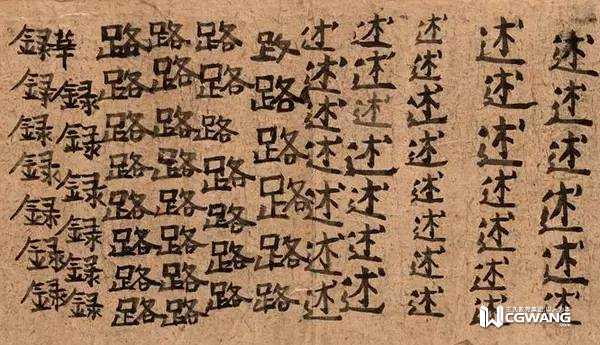 述述述述述述
述述述述述述述
述述述述述述述述
述述述述述述述
述述述述述述述
路路路路路路
路路路路路路路
路路路路路路路路
路路路路路路路路
華録録録録録録
録録録録録録録
CGWANG